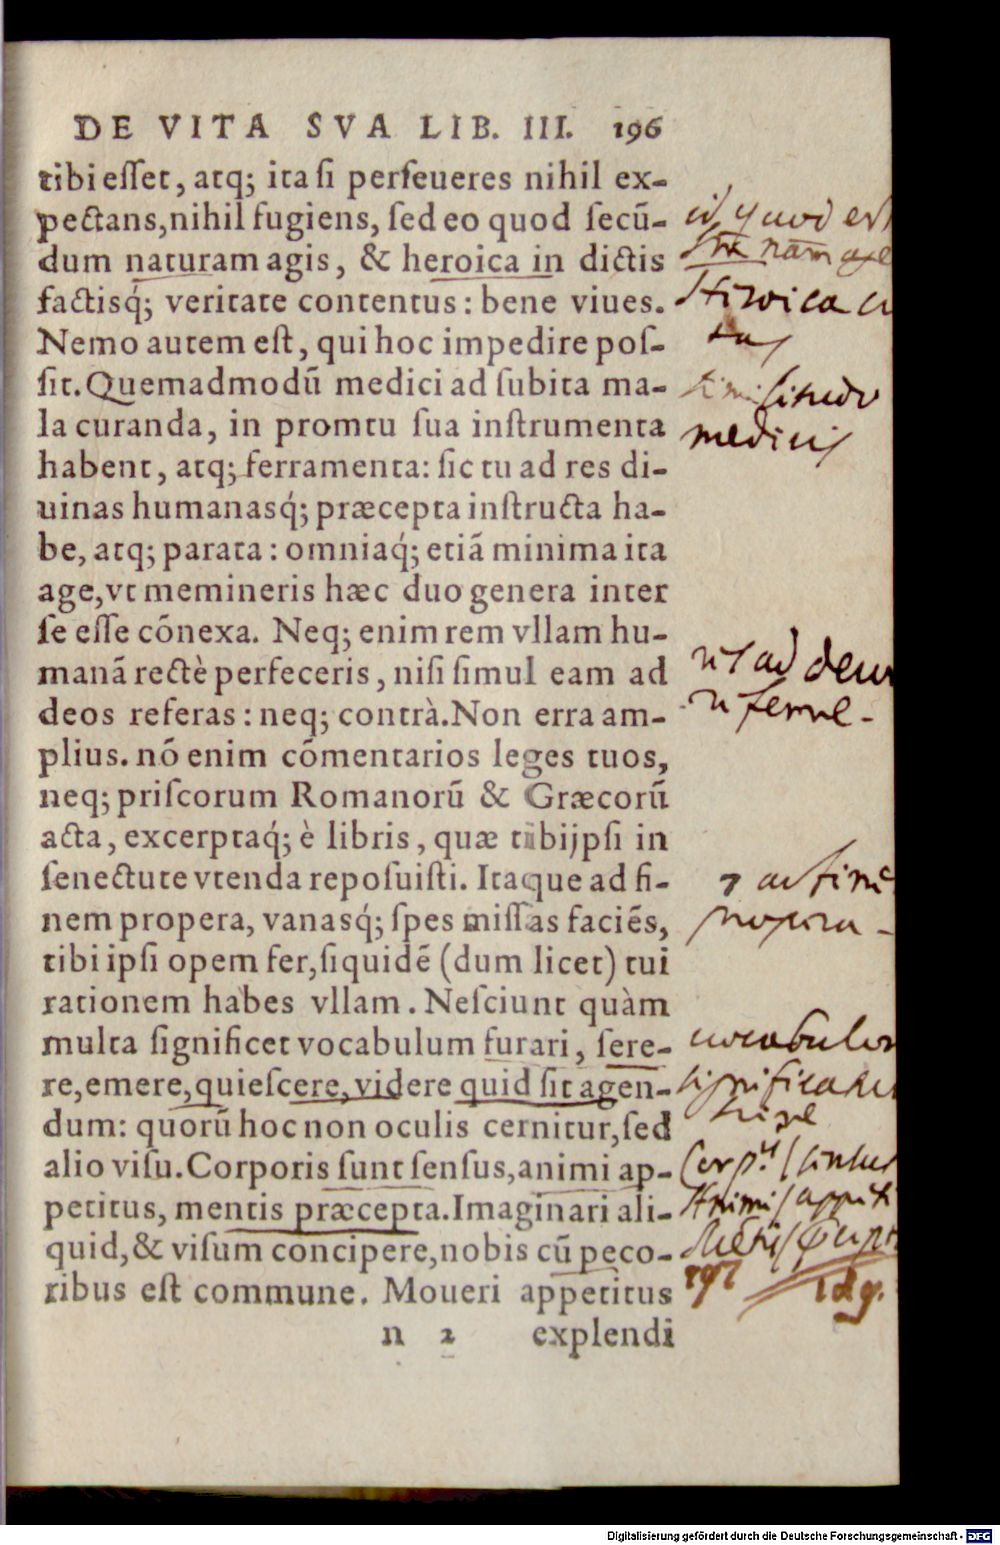 DE VITA SVA LIB. III. 196
tibi eſſet, atq; ita ſi perſeueres nihil ex-
pectans, nihil fugiens, ſed eo quod ſecū-
dum naturam agis, & heroica in dictis
factisq́; veritate contentus: bene viues.
Nemo autem eſt, qui hoc impedire poſ-
ſit. Quemadmodū medici ad ſubita ma-
la curanda, in promtu ſua inſtrumenta
habent, atq; ferramenta: ſic tu ad res di-
uinas humanasq́; præcepta inſtructa ha-
be, atq; parata: omniaq́; etiā minima ita
age, vt memineris hæc duo genera inter
ſe eſſe cōnexa. Neq; enim rem vllam hu-
manā rectè perfeceris, niſi ſimul eam ad
deos referas: neq; contrà. Non erra am-
plius. nō enim cōmentarios leges tuos,
neq; priſcorum Romanorū & Græcorū
acta, excerptaq́; è libris, quæ tibijpſi in
ſenectute vtenda repoſuiſti. Itaque ad fi-
nem propera, vanasq́; ſpes miſſas faciēs,
tibi ipſi opem fer, ſiquidē (dum licet) tui
rationem habes vllam. Neſciunt quàm
multa ſignificet vocabulum furari, ſere-
re, emere, quieſcere, videre quid ſit agen-
dum: quorū hoc non oculis cernitur, ſed
alio viſu. Corporis ſunt ſenſus, animi ap-
petitus, mentis præcepta. Imaginari ali-
quid, & viſum concipere, nobis cū peco-
ribus eſt commune. Moueri appetitus
n 2 explendi
id quod
Heroica
ſimilitudo
medicis
ad deum
ad finē
propera
vocabulor
ſignifica
Corp. ſenſus
Animi appeti
Digitalisierung gefördert durch die Deutsche Forschungsgemeinschaft - DFG